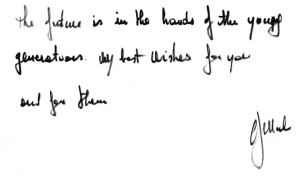 The future is in the hands of the young
generations. My best wishes for you
and for them